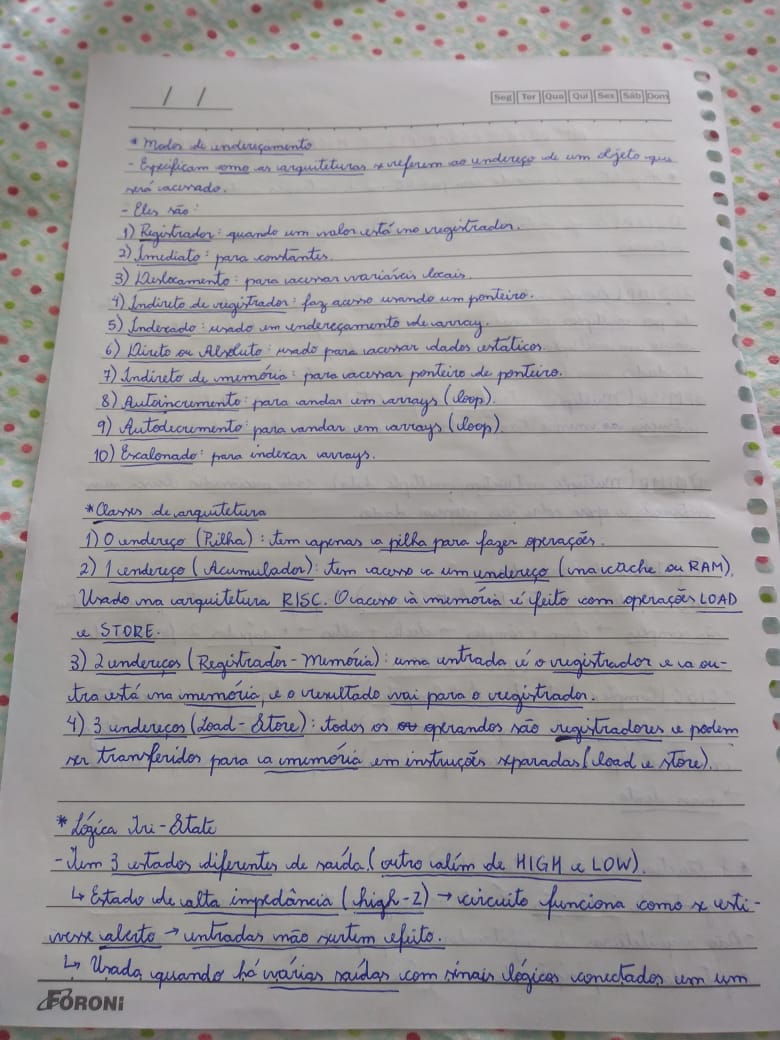 / /
Seg Ter Qua Qui Sex Sáb Dom
* Modos de endereçamento
- Especificam como as arquiteturas se referem ao endereço de um objeto que
será acessado.
- Eles são:
1) Registrador: quando um valor está no registrador.
2) Imediato: para constantes.
3) Deslocamento: para acessar variáveis locais.
4) Indireto de registrador: faz acesso usando um ponteiro.
5) Indexado: usado em endereçamento de array.
6) Direto ou Absoluto: usado para acessar dados estáticos.
7) Indireto de memória: para acessar ponteiro de ponteiro.
8) Autoincremento: para andar em arrays (loop).
9) Autodecremento: para andar em arrays (loop).
10) Escalonado: para indexar arrays.
* Classes de arquitetura
1) 0 endereço (Pilha): tem apenas a pilha para fazer operações.
2) 1 endereço (Acumulador): tem acesso a um endereço (na cache ou RAM).
Usado na arquitetura RISC. O acesso à memória é feito com operações LOAD
e STORE.
3) 2 endereços (Registrador-Memória): uma entrada é o registrador e a ou-
tra está na memória, e o resultado vai para o registrador.
4) 3 endereços (Load-Store): todos os operandos são registradores e podem
ser transferidos para a memória em instruções separadas (load e store).
* Lógica Tri-State
- Tem 3 estados diferentes de saída (outro além de HIGH e LOW).
↳ Estado de alta impedância (high-Z) → circuito funciona como se esti-
vesse aberto → entradas não surtem efeito.
↳ Usada quando há várias saídas com sinais lógicos conectados em um
FORONI